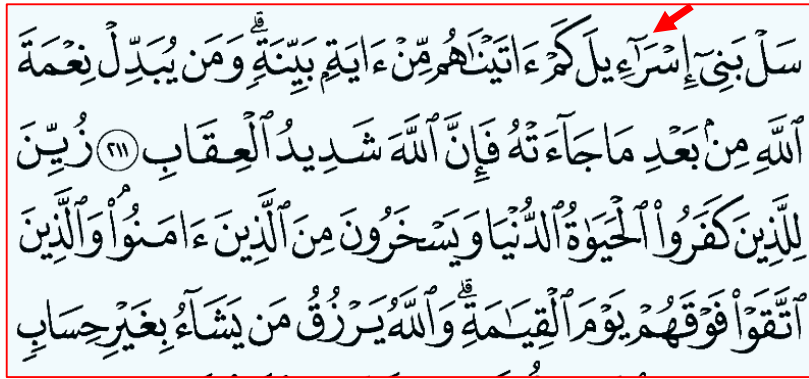 سَلۡ بَنِيٓ إِسۡرَٰٓءِيلَ كَمۡ ءَاتَيۡنَٰهُم مِّنۡ ءَايَةِۭ بَيِّنَةٖۗ وَمَن يُبَدِّلۡ نِعۡمَةَ
ٱللَّهِ مِنۢ بَعۡدِ مَا جَآءَتۡهُ فَإِنَّ ٱللَّهَ شَدِيدُ ٱلۡعِقَابِ ٢١١ زُيِّنَ
لِلَّذِينَ كَفَرُواْ ٱلۡحَيَوٰةُ ٱلدُّنۡيَا وَيَسۡخَرُونَ مِنَ ٱلَّذِينَ ءَامَنُواْۘ وَٱلَّذِينَ
ٱتَّقَوۡاْ فَوۡقَهُمۡ يَوۡمَ ٱلۡقِيَٰمَةِۗ وَٱللَّهُ يَرۡزُقُ مَن يَشَآءُ بِغَيۡرِ حِسَابٖ